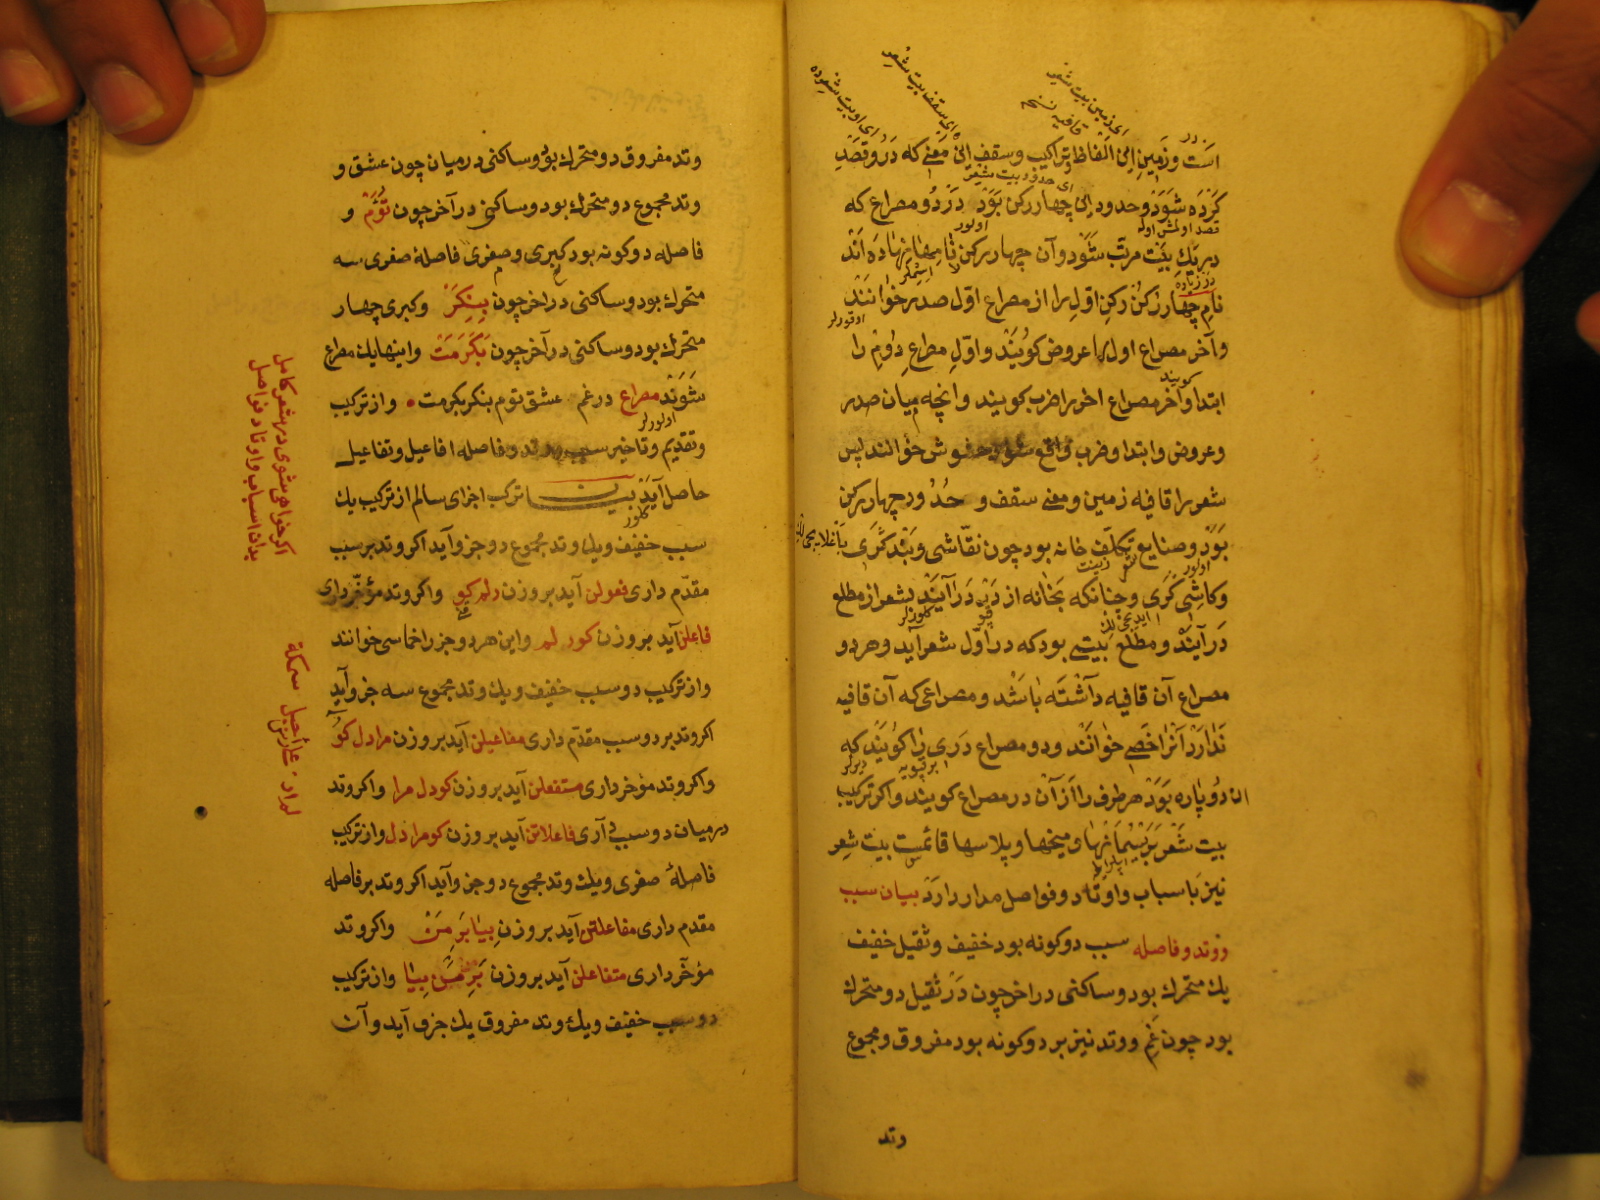 است وزمین الی الفاظ وتراکیب وسقف الی معنی که درو قصد
کرده شود وحدود الی چهار رکن بود در دو مصراع که
در یك بیت مرتب شود وآن چهار رکن نامها نهاده اند
نام چهار رکن رکن اول را از مصراع اول صدر خوانند
وآخر مصراع اول را عروض کویند واول مصراع دوم را
ابتدا وآخر مصراع اخر را ضرب کویند وانچه میان صدر
وعروض وابتدا وضرب واقع شود حشوش خوانند پس
شعر را قافیه زمین ومعنی سقف و حدود چهار رکن
بود وصنایع تکلف خانه بود چون نقاشی وبند کری
وکاشی کری وچنانکه بخانه از در درآیند بشعر از مطلع
درآیند ومطلع بیتی بود که در اول شعر آید وهر دو
مصراع آن قافیه داشته باشد ومصراعی که آن قافیه
ندارد آنرا خصی خوانند ودو مصراع دری را کویند که
آن دو پاره بود هر طرف را از آن در مصراع کویند واکر ترکیب
بیت شعر بریسمانها ومیخها وپلاسها قائمست بیت شعر
نیز باسباب واوتاد وفواصل مدار دارد بیان سبب
ووتد وفاصله سبب دو کونه بود خفیف وثقیل خفیف
یك متحرك بود وساکنی در اخر چون در ثقیل دو متحرك
بود چون غم ووتد نیز بر دو کونه بود مفروق ومجموع
وتد
وتد مفروق دو متحرك بود وساکنی درمیان چون عشق و
وتد مجموع دو متحرك بود وساکنی در آخر چون توم و
فاصله دو کونه بود کبری وصغری فاصلهٔ صغری سه
متحرك بود وساکنی در اخر چون بنکر وکبری چهار
متحرك بود وساکنی در آخر چون بکرمت واینها یك مصراع
شوند مصراع در غم عشق توم بنکر بکرمت وازترکیب
وتقدیم وتاخیر سبب ووتد وفاصله افاعیل وتفاعیل
حاصل آید بیان ترکب اجزای سالم از ترکیب یك
سبب خفیف ویك وتد مجموع دو جز وآید اکر وتد بر سبب
مقدم داری فعولن آید بر وزن دلم کو واکر وتد مؤخر داری
فاعلن آید بر وزن کو دلم واین هر دو جز را خماسی خوانند
وازترکیب دو سبب خفیف ویك وتد مجموع سه جز وآید
اکر وتد بر دو سبب مقدم داری مفاعیلن آید بر وزن مرا دل کو
واکر وتد مؤخر داری مستفعلن آید بر وزن کو دل مرا واکر وتد
درمیان دو سبب آری فاعلاتن آید بر وزن کو مرا دل وازترکیب
فاصلهٔ صغری ویك وتد مجموع دو جز وآید اکر وتد بر فاصله
مقدم داری مفاعلتن آید بر وزن بیا بر من واکر وتد
مؤخر داری متفاعلن آید بر وزن بر من بیا وازترکیب
دو سبب خفیف ویك وتد مفروق یك جزو آید وآن
اکر خواهی شوی در شعر کامل
بدان اسباب واوتاد وفواصل